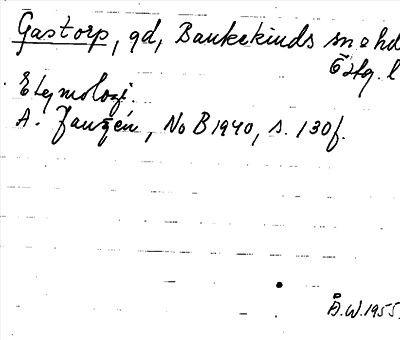 Gastorp, gd, Bankekinds sn o hd
Ötlg. l
Etymologi.
A. Janzén, NoB 1940, s. 130f.
B.W. 1955.